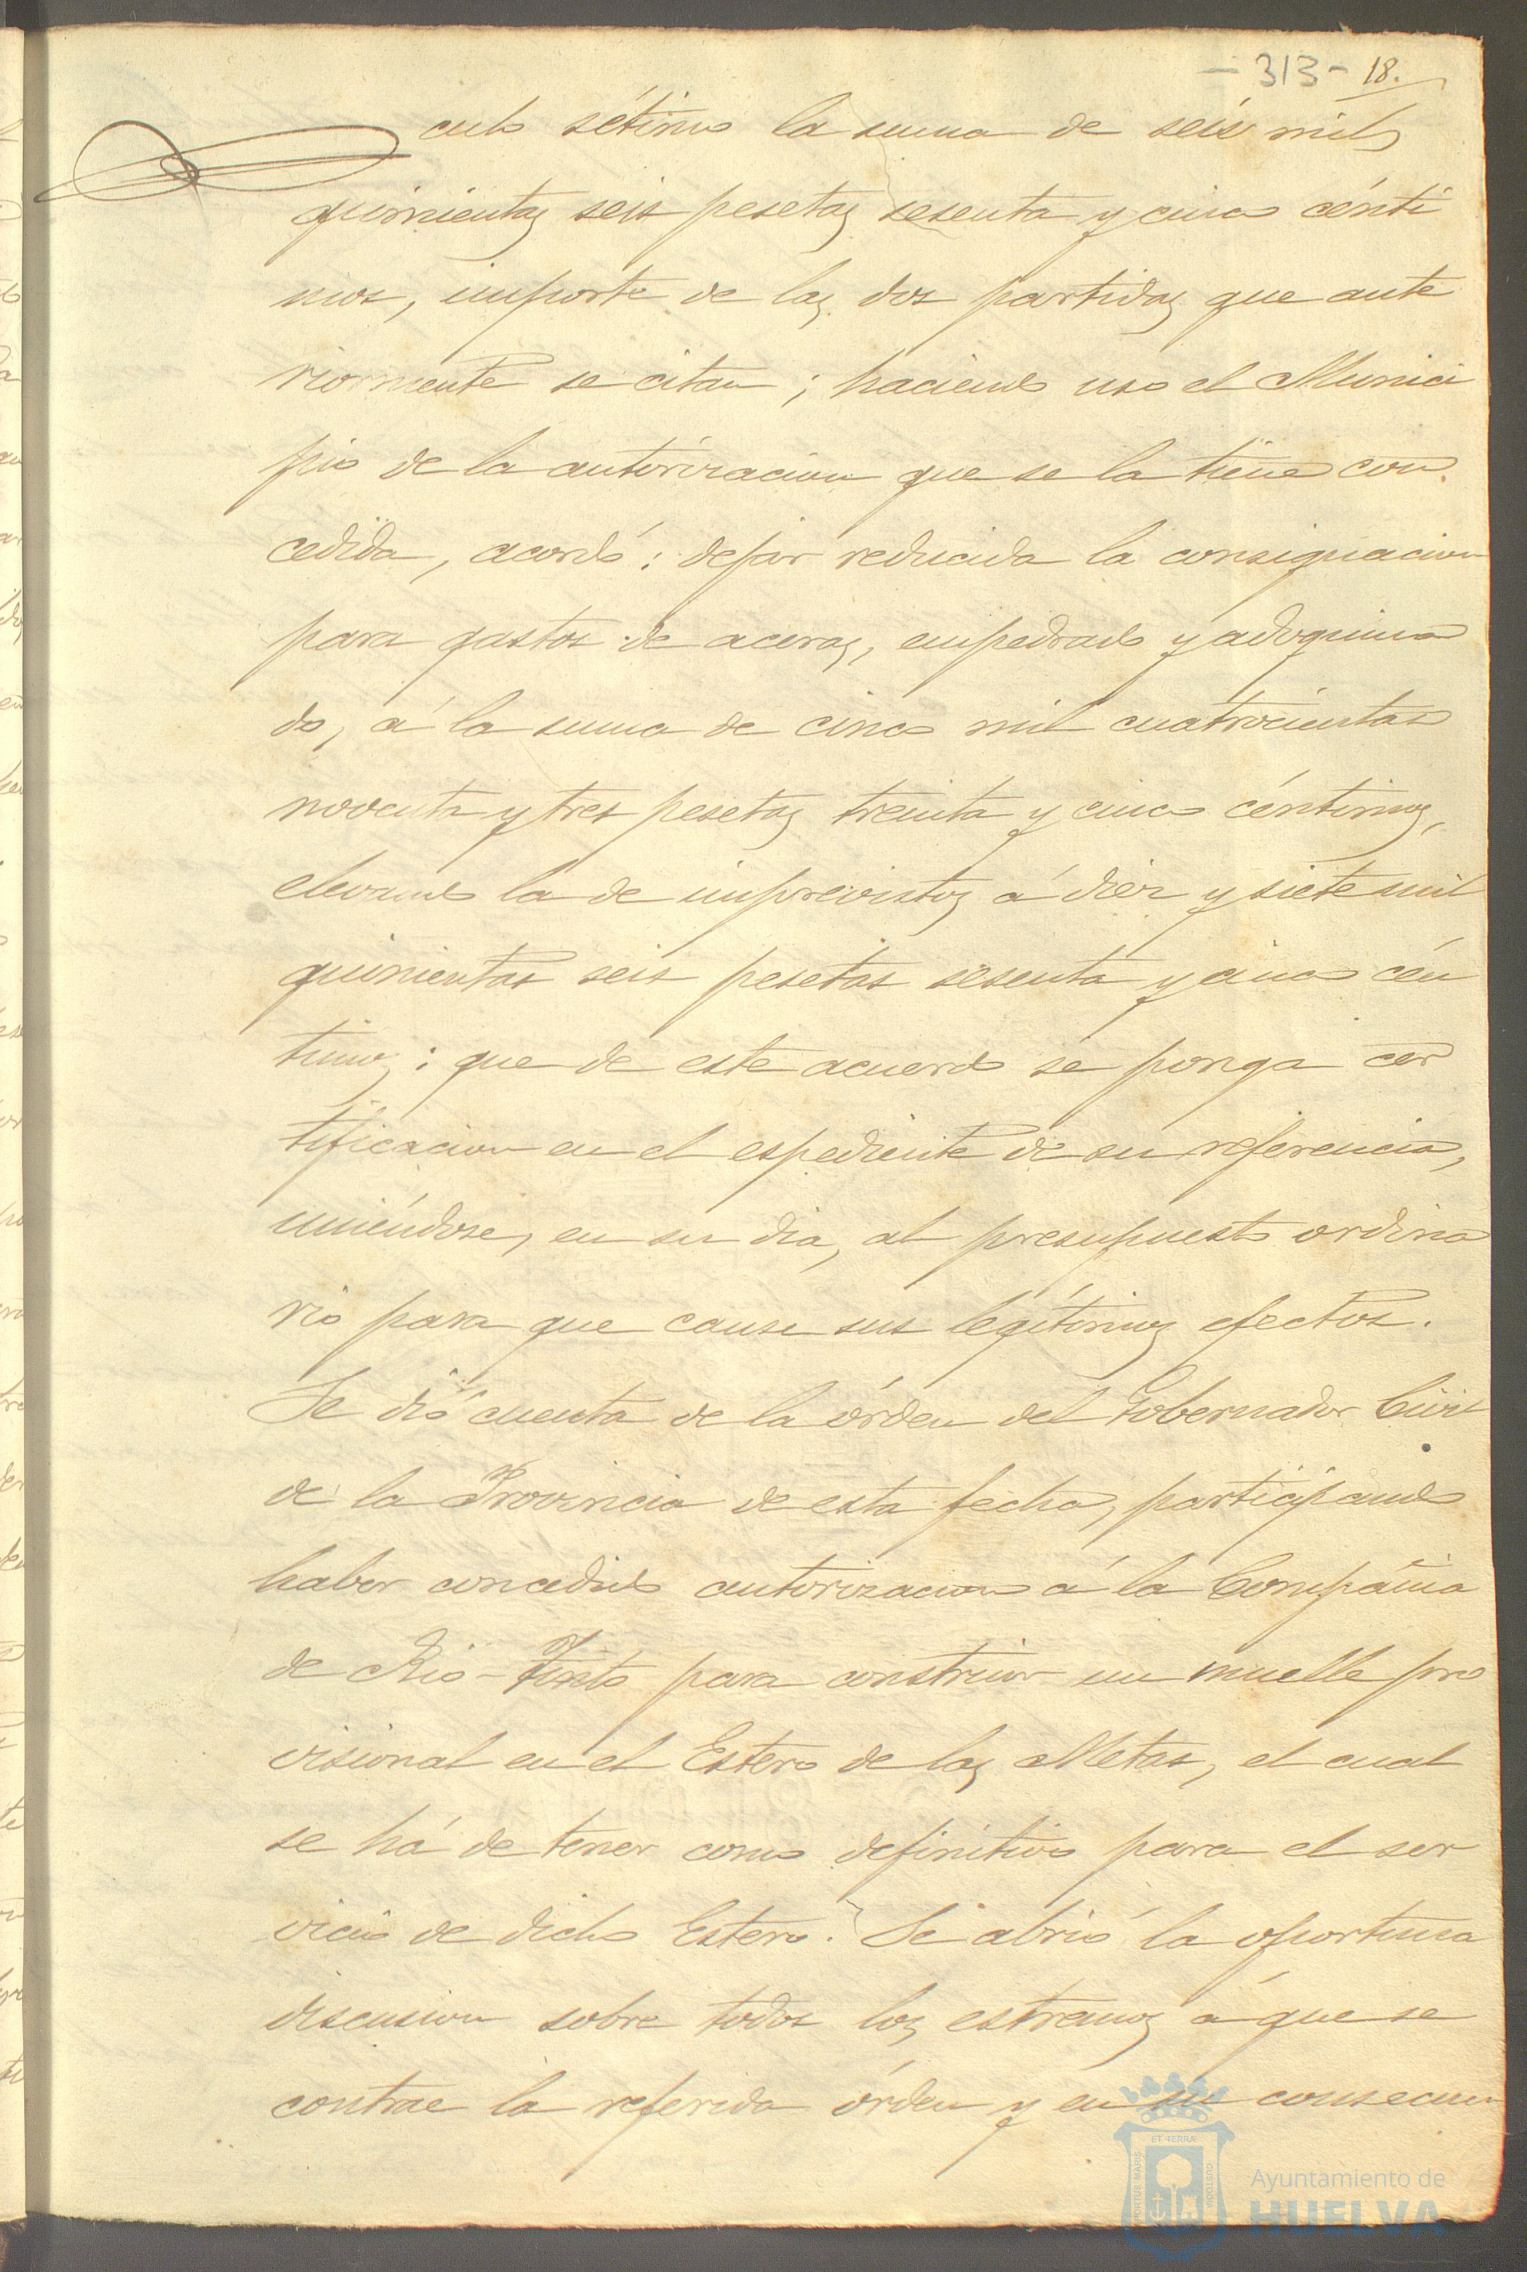 - 313 - 18.
culo sétimo la suma de seis mil
quinientas seis pesetas sesenta y cinco cénti
mos, importe de las dos partidas que ante
riormente se citan; haciendo uso el Munici
pio de la autorizacion que se la tiene con
cedida, acordó: dejar reducida la consignacion
para gastos de aceras, empedrado y adoquina
do, á la suma de cinco mil cuatrocientas
noventa y tres pesetas treinta y cinco céntimos,
elevando la de imprevistos á diez y siete mil
quinientas seis pesetas sesenta y cinco cén
timos: que de este acuerdo se ponga cer
tificacion en el espediente de su referencia,
uniéndose, en su dia, al presupuesto ordina
rio para que cause sus legítimos efectos.
Se dió cuenta de la órden del Gobernador Civil
de la Provincia de esta fecha, participando
haber concedido autorizacion á la Compañia
de Rio-Tinto para construir un muelle pro
visional en el Estero de las Metas, el cual
se há de tener como definitivo para el ser
vicio de dicho Estero. Se abrió la oportuna
discusion sobre todos los estremos á que se
contrae la referida órden y en su consecuen
ET TERRÆ
PORTUS MARIS
CUSTODIA
Ayuntamiento de
HUELVA